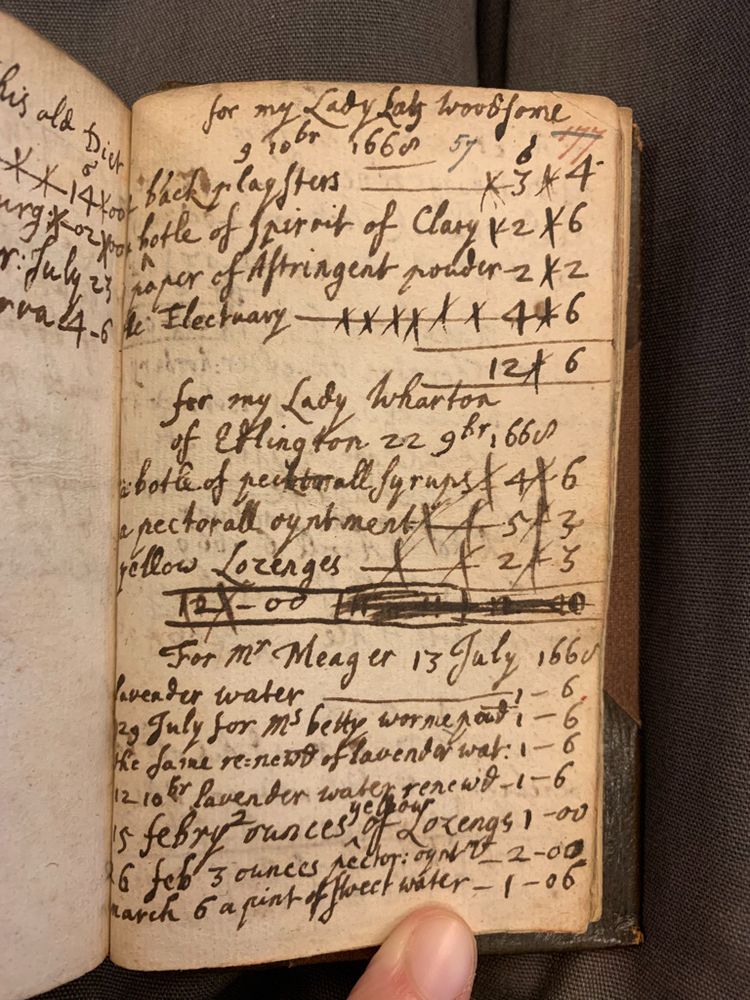 his old Diet
14 00
urg: 02 00
r: July 23
rva 4-6
for my Lady Woodsome
9 10br 1668 57 177
back playsters 3 4
botle of spirrit of Clary 2 6
paper of Astringent pouder 2 2
Electuary 4 6
12 6
for my Lady Wharton
of Edlington 22 9br 1668
botle of pecktorall syrups 4 6
a pectorall oyntment 5 3
yellow Lozenges 2 3
12 - 00
For Mr Meager 13 July 1668
lavender water 1 - 6
29 July for Ms betty worme poud 1 - 6
the same re=newd of lavender wat: 1 - 6
12 10br lavender water renewd - 1 - 6
yellow
15 febry 2 ounces of Lozengs 1 - 00
26 feb 3 ounces pector: oyntmt - 2 - 00
march 6 a pint of sweet water - 1 - 06